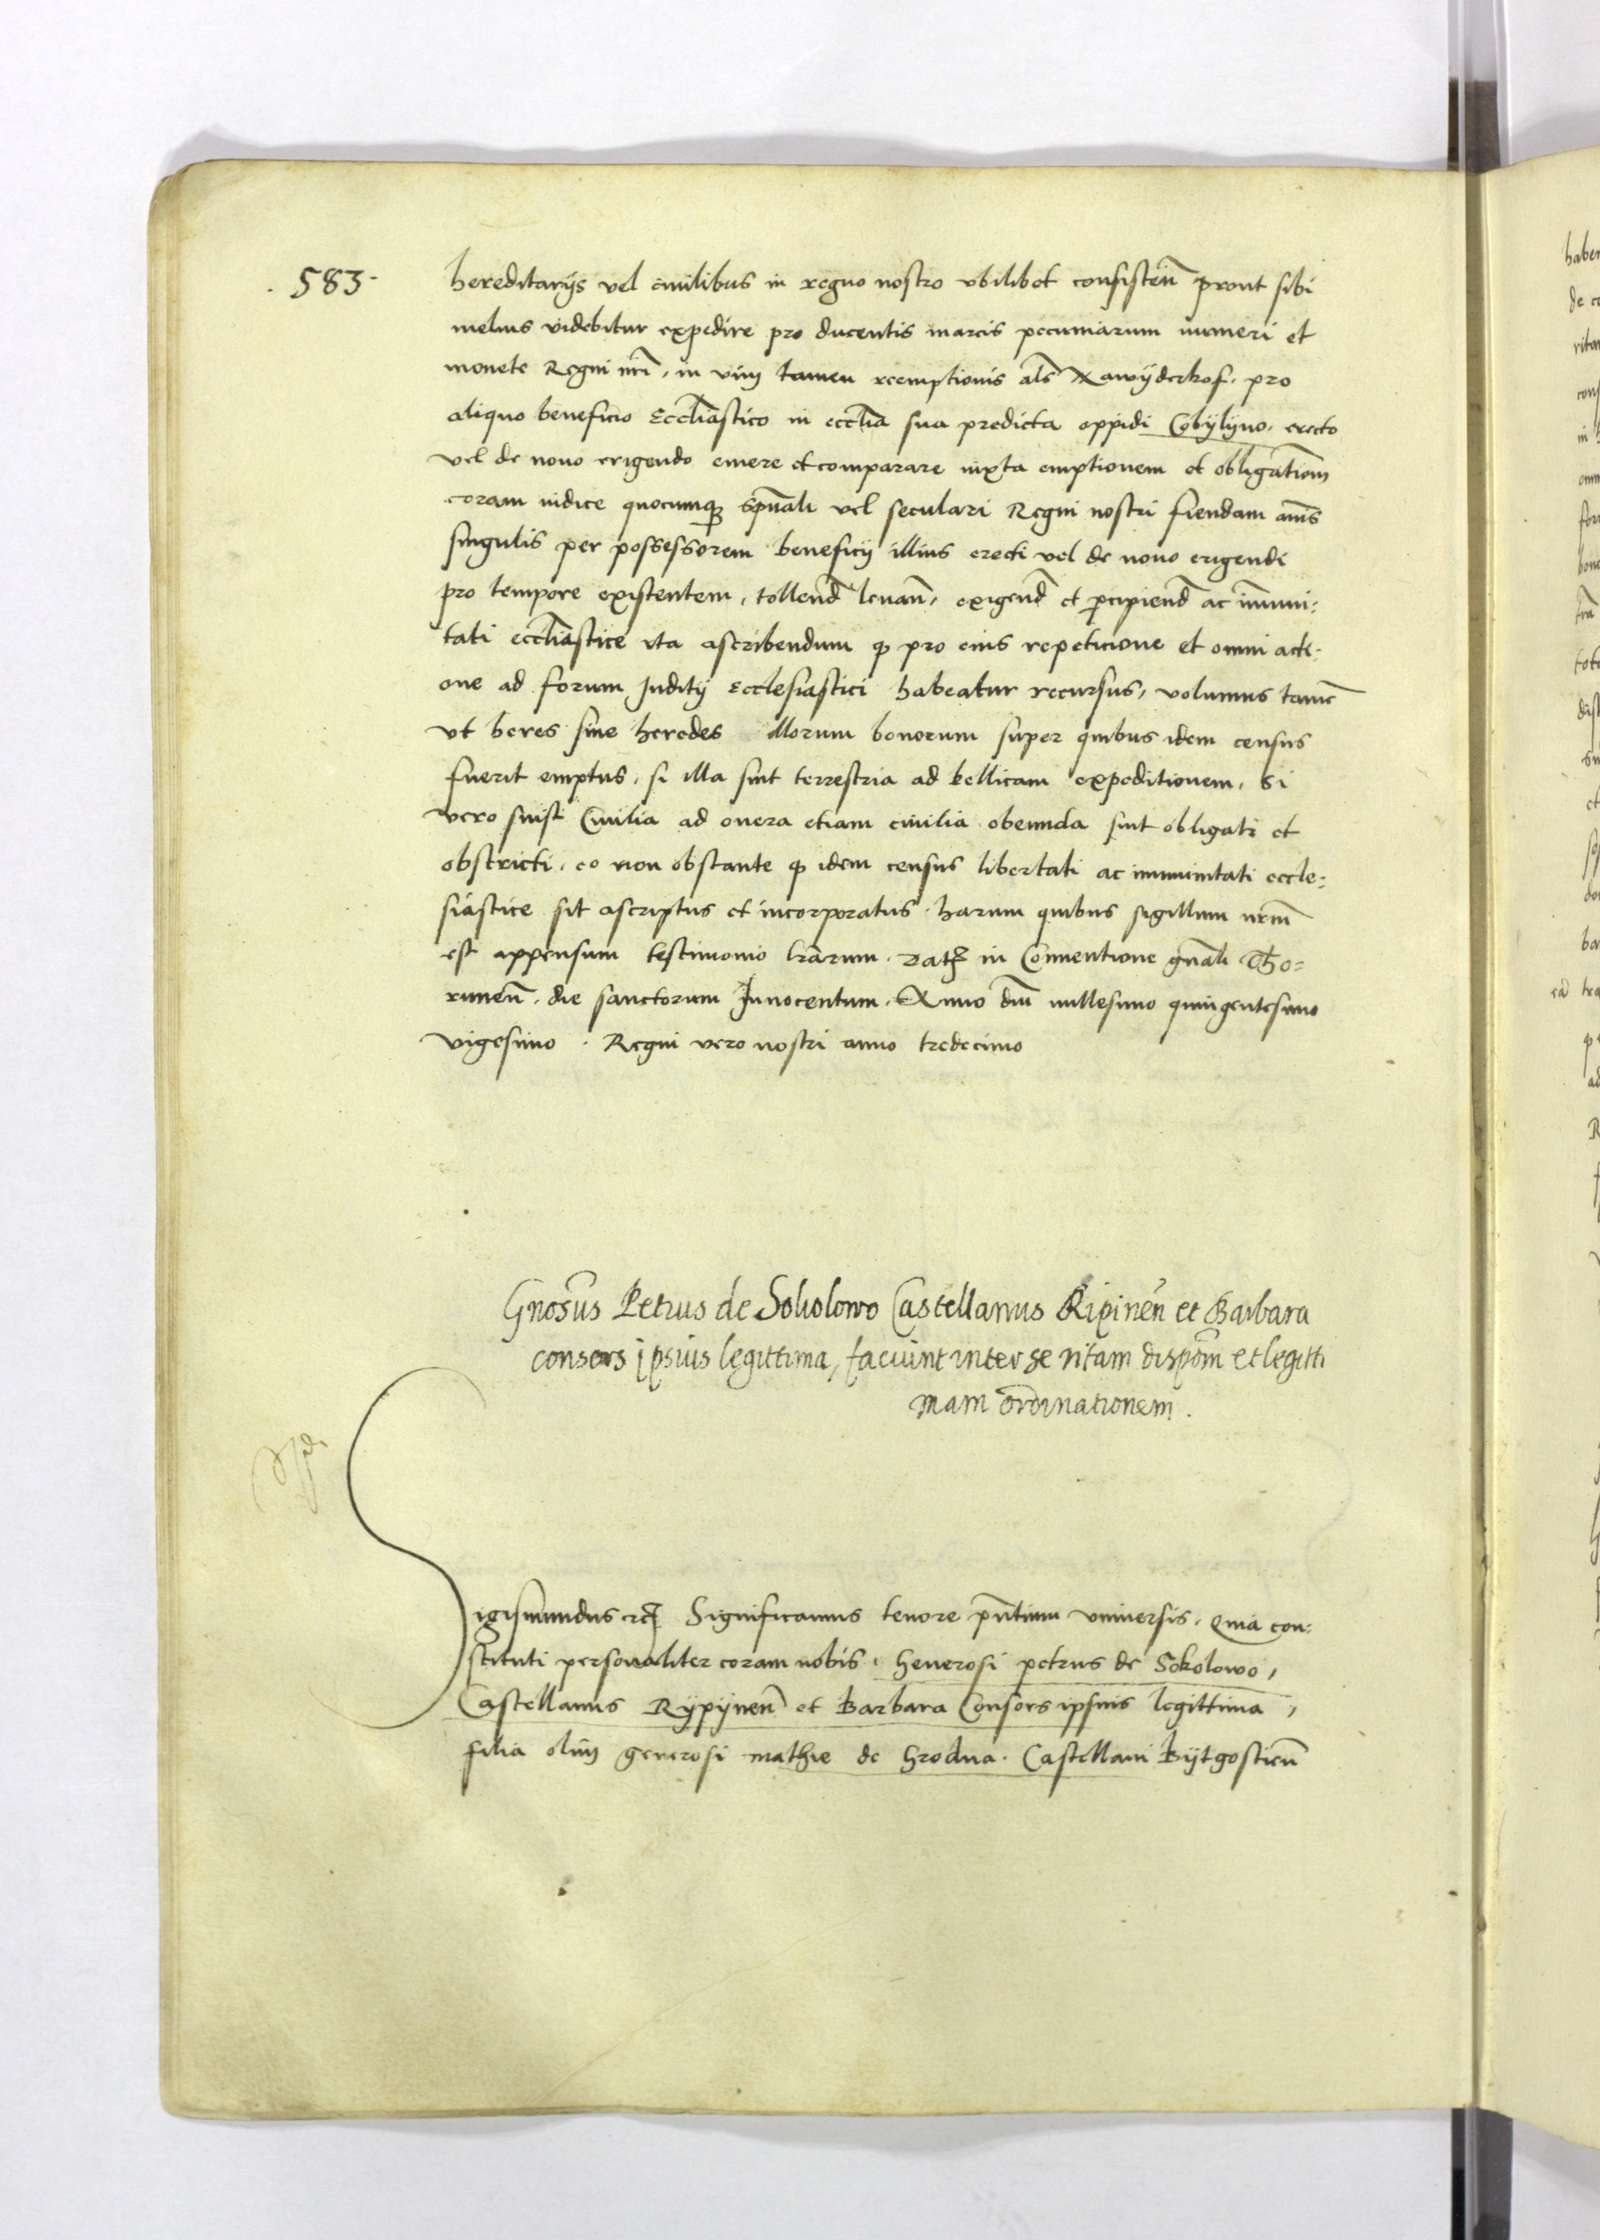 . 583 .
hereditarijs vel civilibus in regno nostro vbilibet consisteñ prout sibi
melius videbitur expedire pro ducentis marcis pecuniarum numeri et
monete Regni nr̃i, in vim tamen reemptionis al̃s Nawijderkof, pro
aliquo beneficio Eccl̃iastico in eccl̃ia sua predicta oppidi Cobylyno, erecto
vel de nouo erigendo emere et comparare iuxta emptionem et obligation̄em
coram iudice quocumq; sp̃uali vel seculari Regni nostri fiendam annis
singulis per possessorem beneficij illius erecti vel de nouo erigendi
pro tempore existentem, tollend̃ leuañ, exigend̃ et percipiend̃ ac im̄uni:
tati eccl̃iastice ita ascribendum q̃ pro eius repeticione et omni acti:
one ad forum Juditij Ecclesiastici habeatur recursus, volumus tamẽ
vt heres siue heredes illorum bonorum super quibus idem census
fuerit emptus, si illa sint terrestria ad bellicam expeditionem, Si
vero sint Ciuilia ad onera etiam ciuilia obeunda sint obligati et
obstricti, eo non obstante q̃ idem census libertati ac immunitati eccle:
siastice sit ascriptus et incorporatus. harum quibus sigillum nr̃m
est appensum testimonio l̃rarum. Dat̃ in Conuentione gñali Tho=
runeñ, die sanctorum Innocentum, Anno dñi millesimo quingentesimo
vigesimo. Regni vero nostri anno tredecimo
Gnosus Petrus de Sokolowo Castellanus Ripineñ et Barbara
consors ipsius legittima, faciunt inter se ritam disp̃om et legitti
mam ordinationem.
igismundus etc̃ Significamus tenore pñtium vniuersis, Quia con:
stituti personaliter coram nobis, Generosi petrus de Sokolowo,
Castellanus Rypyneñ et Barbara Consors ipsius legittima,
filia olim generosi mathie de Grodna. Castellani Bijtgostieñ